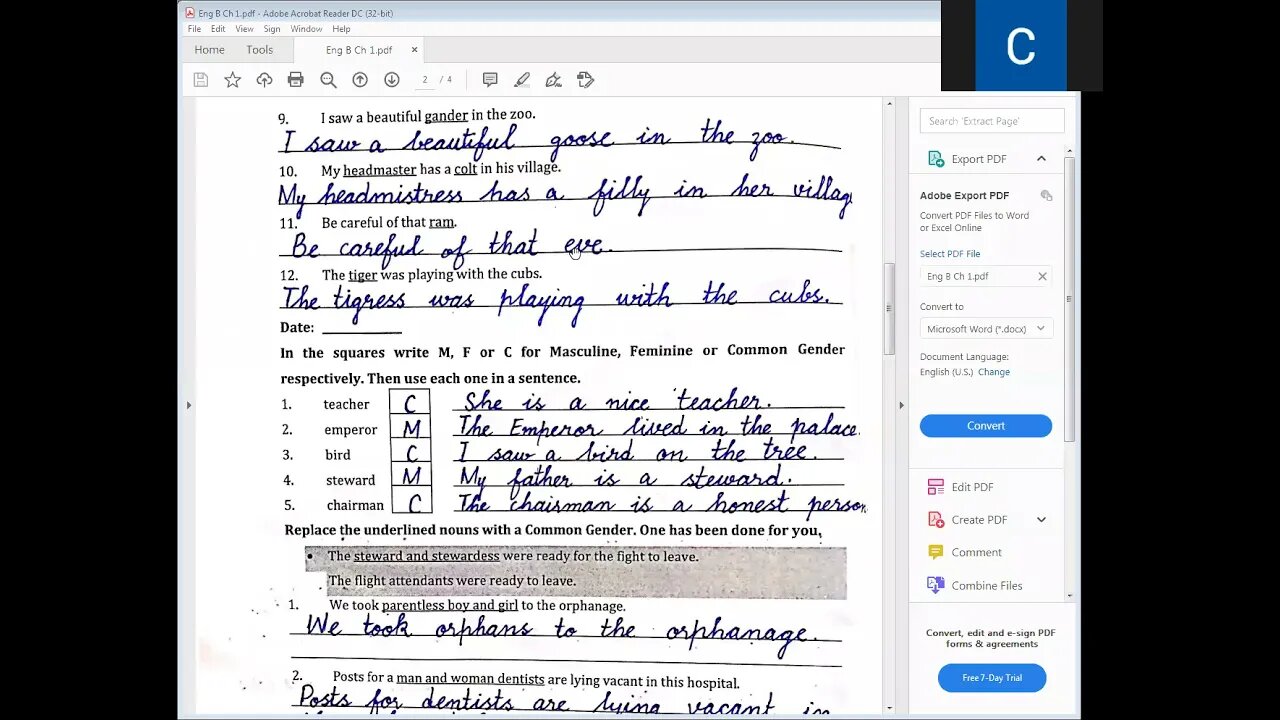 Eng B Ch 1.pdf - Adobe Acrobat Reader DC (32-bit)
File Edit View Sign Window Help
Home Tools Eng B Ch 1.pdf ×
2 / 4
C
9. I saw a beautiful gander in the zoo.
I saw a beautiful goose in the zoo.
10. My headmaster has a colt in his village.
My headmistress has a filly in her villag
11. Be careful of that ram.
Be careful of that eve.
12. The tiger was playing with the cubs.
The tigress was playing with the cubs.
Date:
In the squares write M, F or C for Masculine, Feminine or Common Gender
respectively. Then use each one in a sentence.
1. teacher C She is a nice teacher.
2. emperor M The Emperor lived in the palace.
3. bird C I saw a bird on the tree.
4. steward M My father is a steward.
5. chairman C The chairman is a honest person
Replace the underlined nouns with a Common Gender. One has been done for you,
• The steward and stewardess were ready for the fight to leave.
The flight attendants were ready to leave.
1. We took parentless boy and girl to the orphanage.
We took orphans to the orphanage.
2. Posts for a man and woman dentists are lying vacant in this hospital.
Posts for dentists are lying vacant in
Search 'Extract Page'
Export PDF
Adobe Export PDF
Convert PDF Files to Word
or Excel Online
Select PDF File
Eng B Ch 1.pdf
Convert to
Microsoft Word (*.docx)
Document Language:
English (U.S.) Change
Convert
Edit PDF
Create PDF
Comment
Combine Files
Convert, edit and e-sign PDF
forms & agreements
Free 7-Day Trial